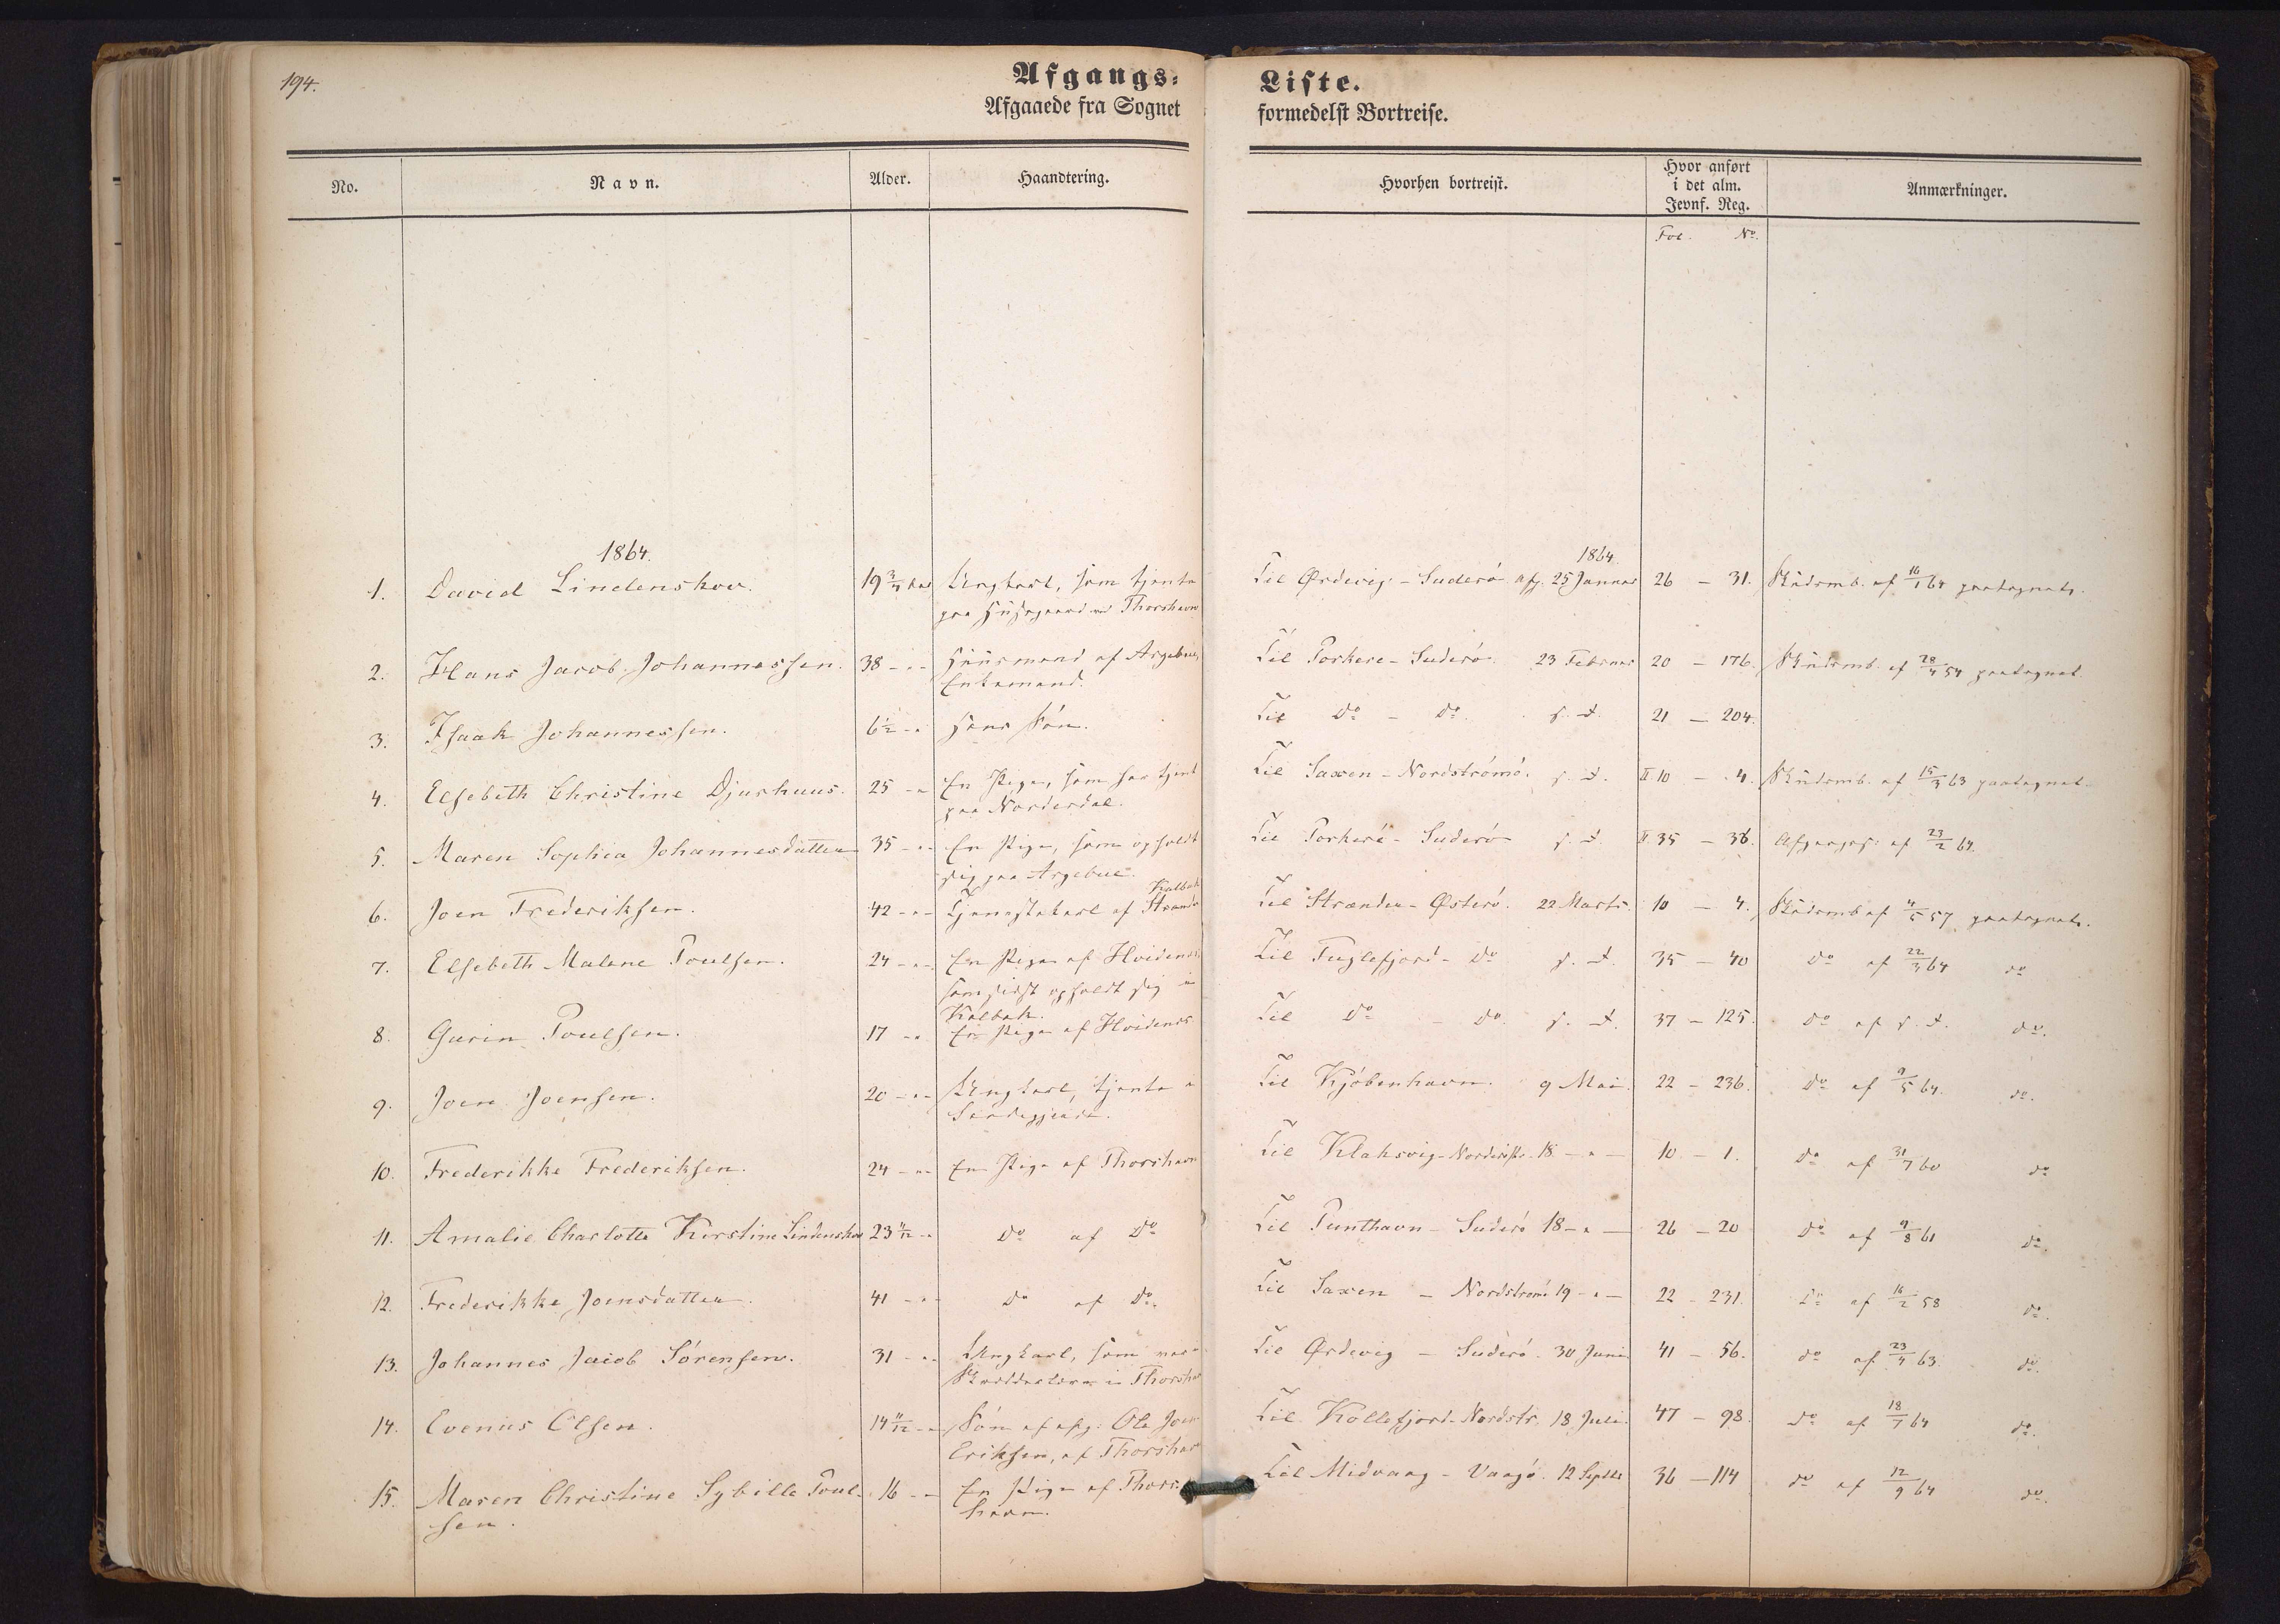 194.
Afgangs-
Liste.
Afgaaede fra Sognet
formedelst Bortreise.
No.
Navn.
Alder.
Haandtering.
Hvorhen bortreist.
Hvor anført
i det alm.
Jevnf. Reg.
Anmærkninger.
Fol. No.
1864.
1864.
1. David Lindenskov. 19 3/4 Aar Ungkarl, som tjente
paa Huusgaard ved Thorshavn
Til Ørdevig - Suderö afg. 25 Januar 26 - 31. Skudsmb. af 16/1 64 paategnet.
2. Hans Jacob Johannessen. 38 - " - Huusmand af Argebue,
Enkemand.
Til Porkere - Suderö. 23 Februar 20 - 176. Skudsmb. af 28/4 54 paategnet.
3. Isaak Johannessen. 6 1/2 - " Hans Sön.
Til do - do. s. d. 21 - 204.
4. Elsebeth Christine Djurhuus. 25 - " En Pige, som har tjent
paa Norderdal.
Til Saxen - Nordströmö. s. d. II 10 - 4. Skudsmb. af 15/3 63 paategnet.
5. Maren Sophia Johannesdatter 35 - " - En Pige, som opholdt
sig paa Argebue.
Til Porkere - Suderö s. d. II 35 - 36. Afgangs: af 23/2 64.
6. Joen Frederiksen. 42 - " - Tjenestekarl af Kalbak
Til Strænder - Österö. 22 Marts. 10 - 4. Skudsmb af 4/5 57 paategnet.
7. Elsebeth Malene Poulsen. 24 - " - En Pige af Hvidenæs,
som sidst opholdt sig i
Kalbak.
Til Fuglefjord - do s. d. 35 - 40 do af 22/3 64 do
8. Gurin Poulsen. 17 - " En Pige af Hvidenæs
Til do - do. s. d. 37 - 125. do af s. d. do.
9. Joen Joensen. 20 - " - Ungkarl, tjente i
Til Kjöbenhavn. 9 Mai. 22 - 236. do af 9/5 64. do.
10. Frederikke Frederiksen. 24 - " - En Pige af Thorshavn
Til Klaksvig - 18 - " - 10 - 1. do af 31/7 60 do
11. Amalie Charlotte Kirstine Lindenskov 23 11/12 - " do af do
Til Punthavn - Suderö 18 - " - 26 - 20 do af 9/8 61 do.
12. Frederikke Joensdatter. 41 - " - do af do.
Til Saxen - Nordströmö 19 - " - 22 - 231. do af 16/2 58 do.
13. Johannes Jacob Sörensen. 31 - " - Ungkarl, som var i
i Thorshavn
Til Ørdevig - Suderö. 30 Juni 41 - 56. do af 23/4 63. do.
14. Evenius Olsen. 14 11/12 - " Sön af afg: Ole Joen
Eriksen, af Thorshavn
Til Kollefjord - Nordstr. 18 Juli. 47 - 98. do af 18/7 64 do.
15. Maren Christine Sybille Poul-
sen. 16 - " En Pige af Thors-
havn.
Til Midvaag - Vaagö. 12 Septbr 36 - 114 do af 12/9 64 do.